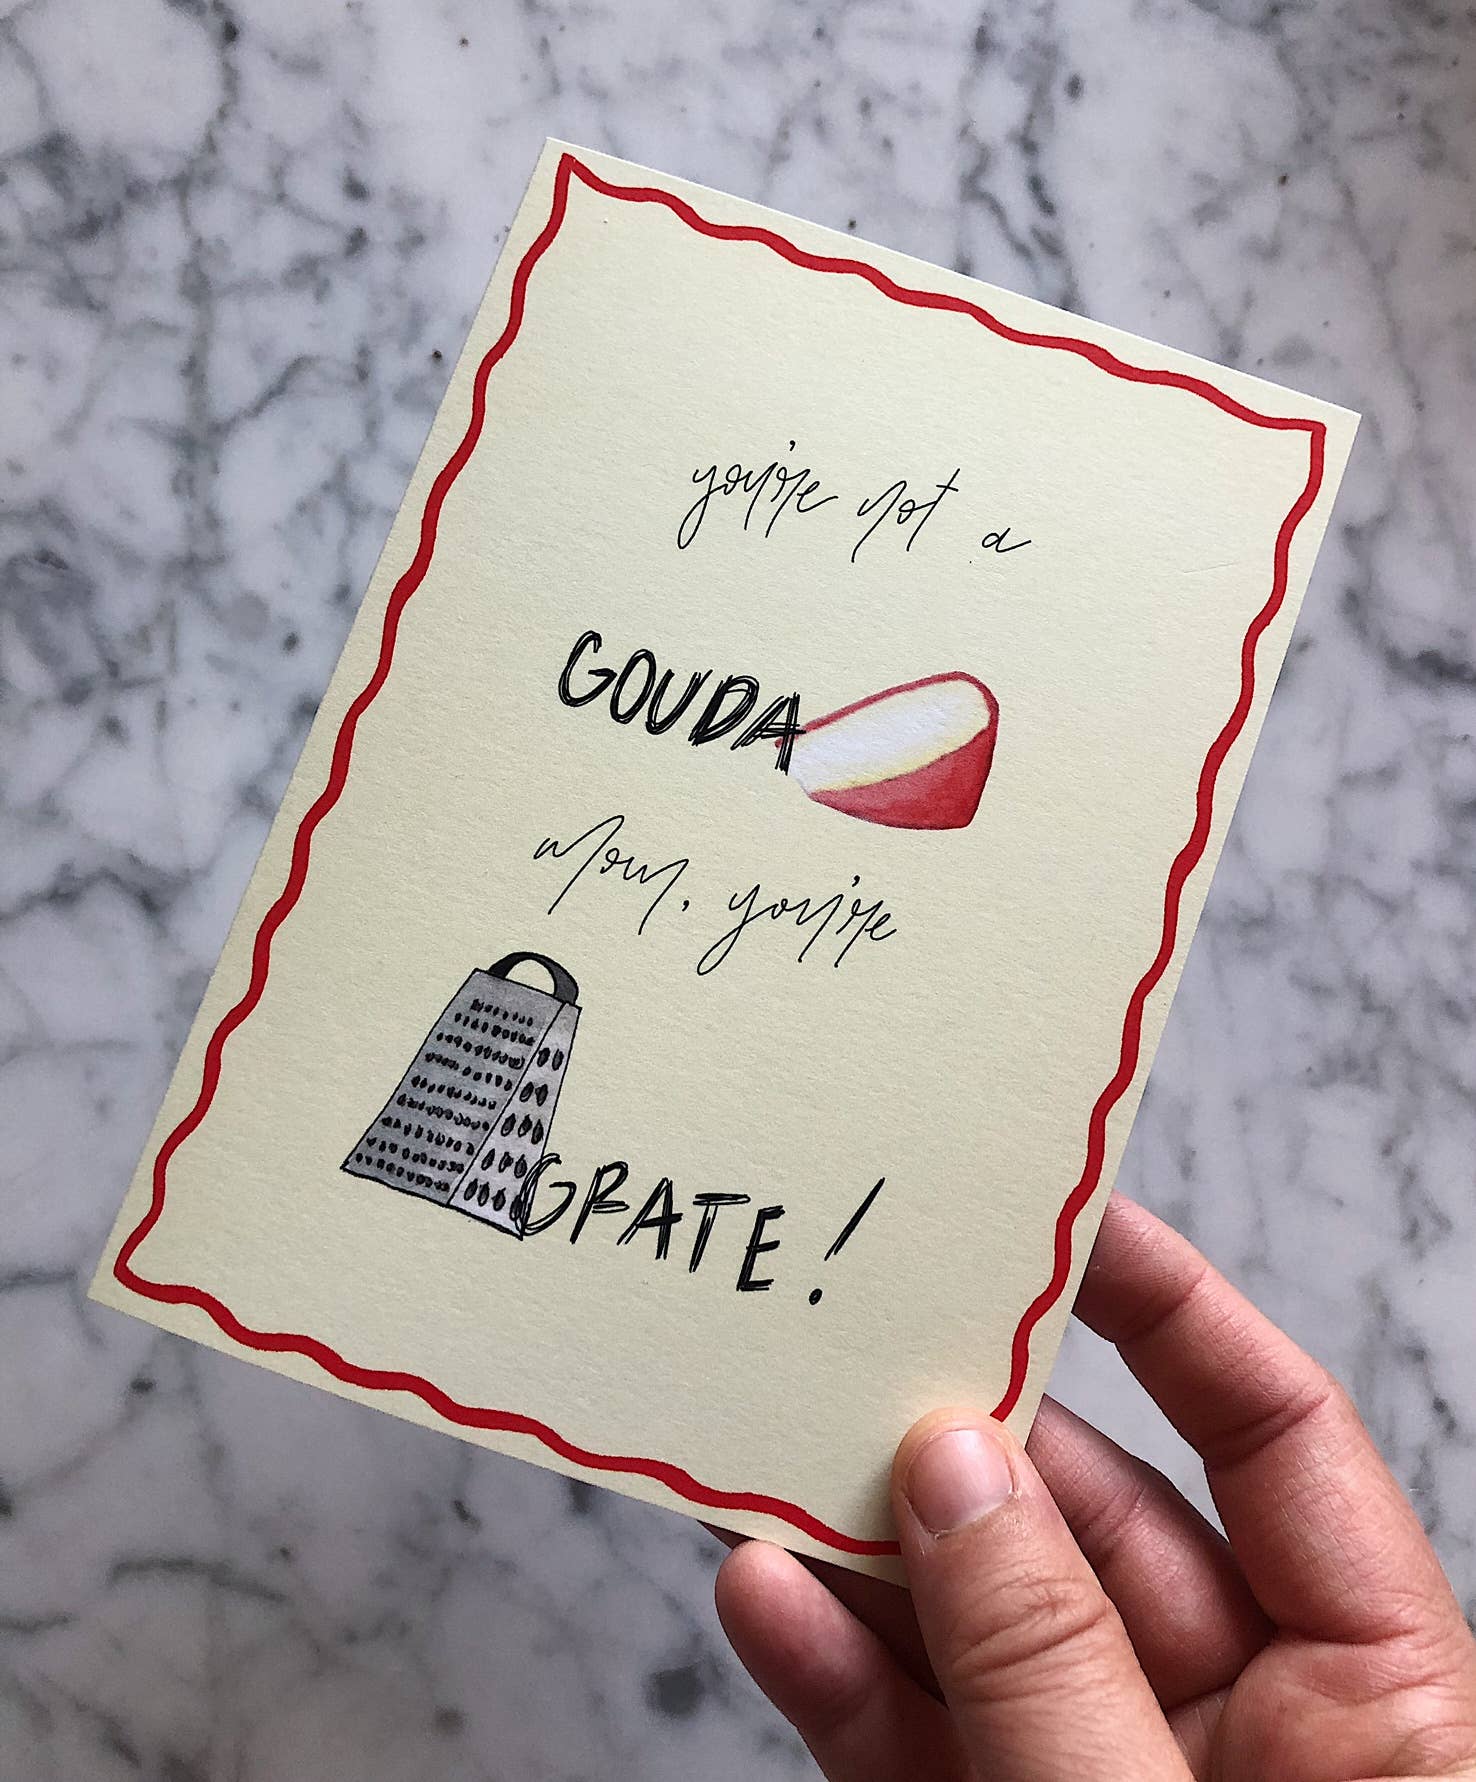 you're not a
GOUDA
mom, you're
GRATE!